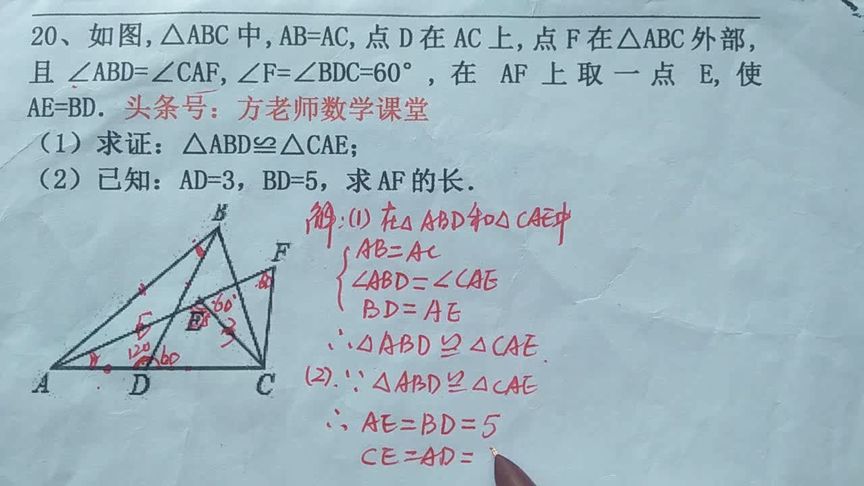 20、如图,△ABC 中,AB=AC,点 D 在 AC 上,点 F 在△ABC 外部,
且 ∠ABD=∠CAF,∠F=∠BDC=60°,在 AF 上取一点 E,使
AE=BD. 头条号：方老师数学课堂
（1）求证：△ABD≌△CAE;
（2）已知：AD=3，BD=5，求 AF 的长.
解:(1) 在△ABD和△CAE中
AB=AC
∠ABD=∠CAE
BD=AE
∴△ABD≌△CAE.
(2).∵△ABD≌△CAE
∴ AE=BD=5
CE=AD=
B
F
60
60°
E
5
3
120
60
A
D
C